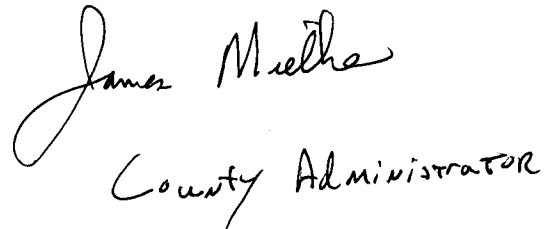 James Mielke
County Administrator